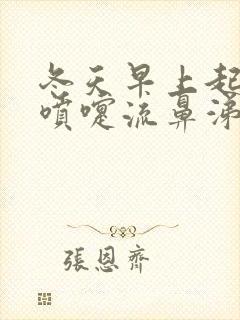 冬天早上起
噴嚏流鼻涕
張恩齊